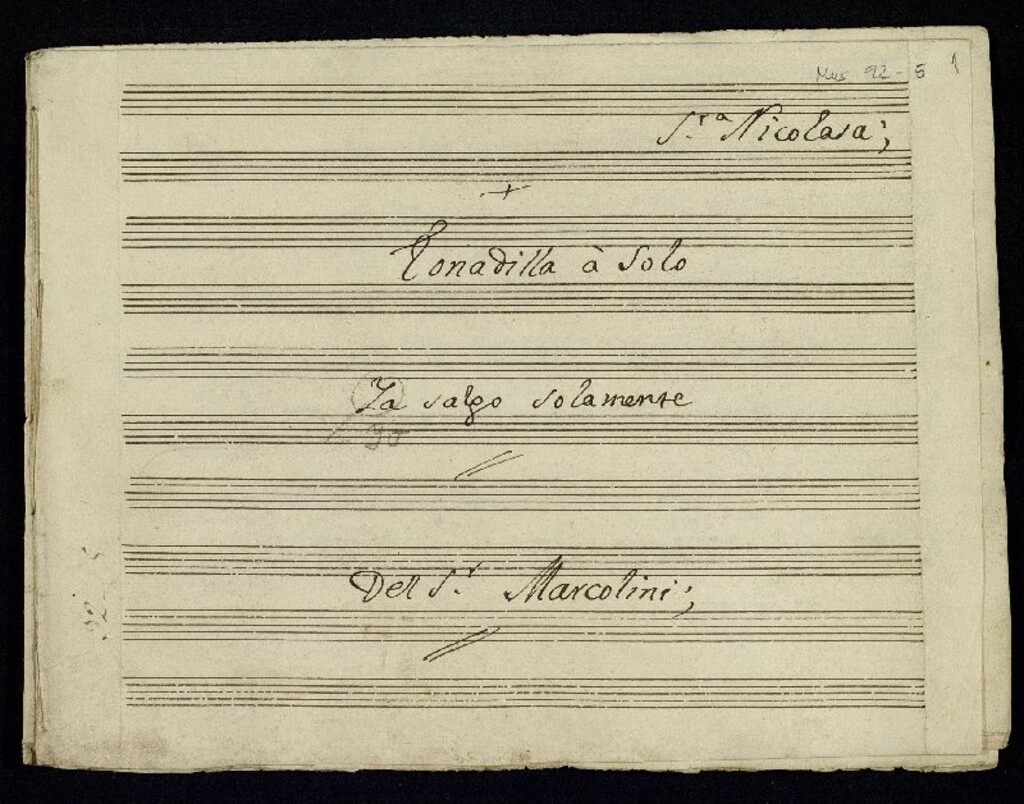 Mus 92-5 1
S.ra Nicolasa;
Tonadilla à Solo
Ya salgo solamente
yo
Del S.r Marcolini;
92 5